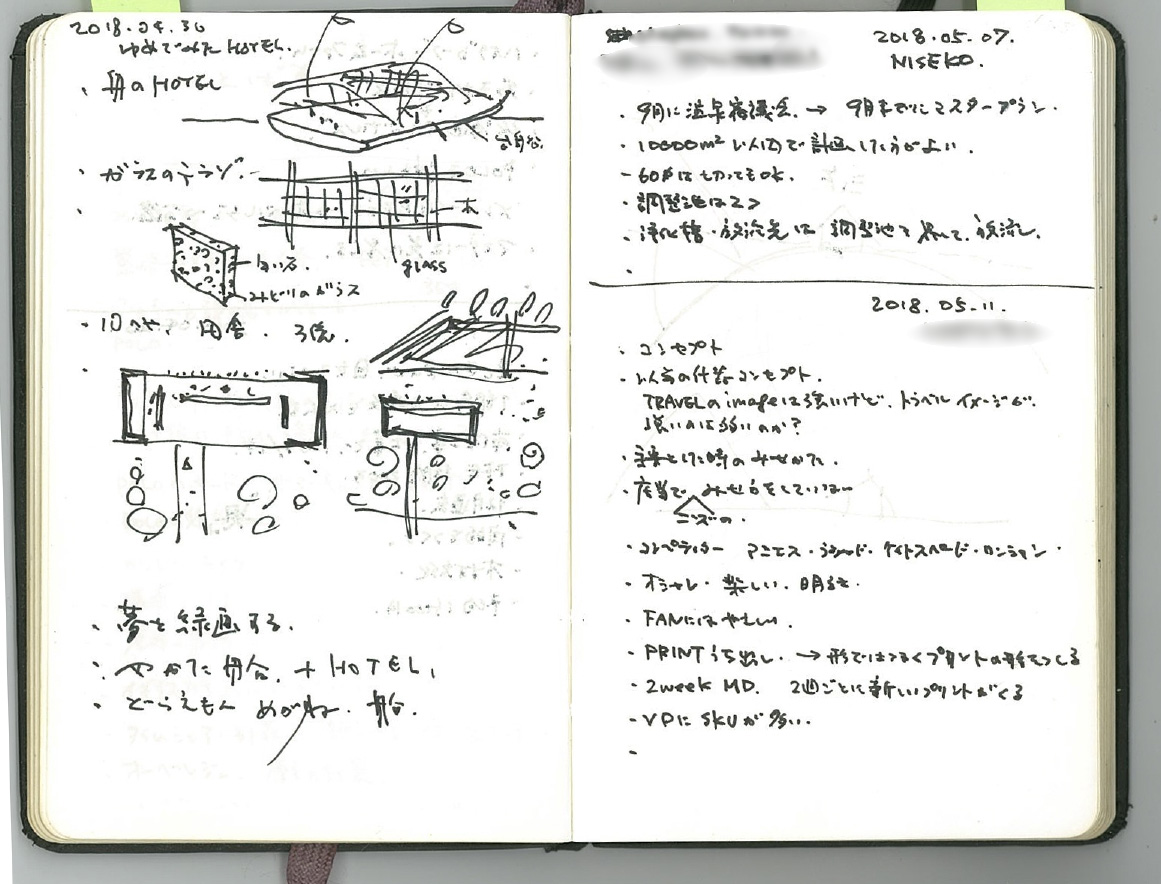 2018.04.30
ゆめでみた HOTEL.
・舟のHOTEL
・ガラスのテラゾ.
木
glass
みどりのガラス
・10へや. 田舎. 3億.
・夢を録画する.
・やかた舟 + HOTEL,
・どらえもん めがね.
2018.05.07.
NISEKO.
・9月に 審議会. → 9月までにマスタープラン.
・10000m² 以内で計画した方がよい.
は切ってもOK.
・調整池は
・浄化槽・放流先は 調整池で 放流し.
2018.05.11.
・コンセプト
・以前の什器コンセプト.
TRAVELのimageは強いけど、トラベルイメージが.
強いのは のか?
・ した時のみせかた.
・ みせ方をしていない
・コンペティター アニエス・ ・ケイトスペード・ロンシャン・
・オシャレ・楽しい. 明るさ.
・FANにはやさしい.
・PRINTうち出し. → 形ではなくプリントの をつくる
・2week MD. 2週ごとに新しいプリントがくる
・VPに SKUが多い.